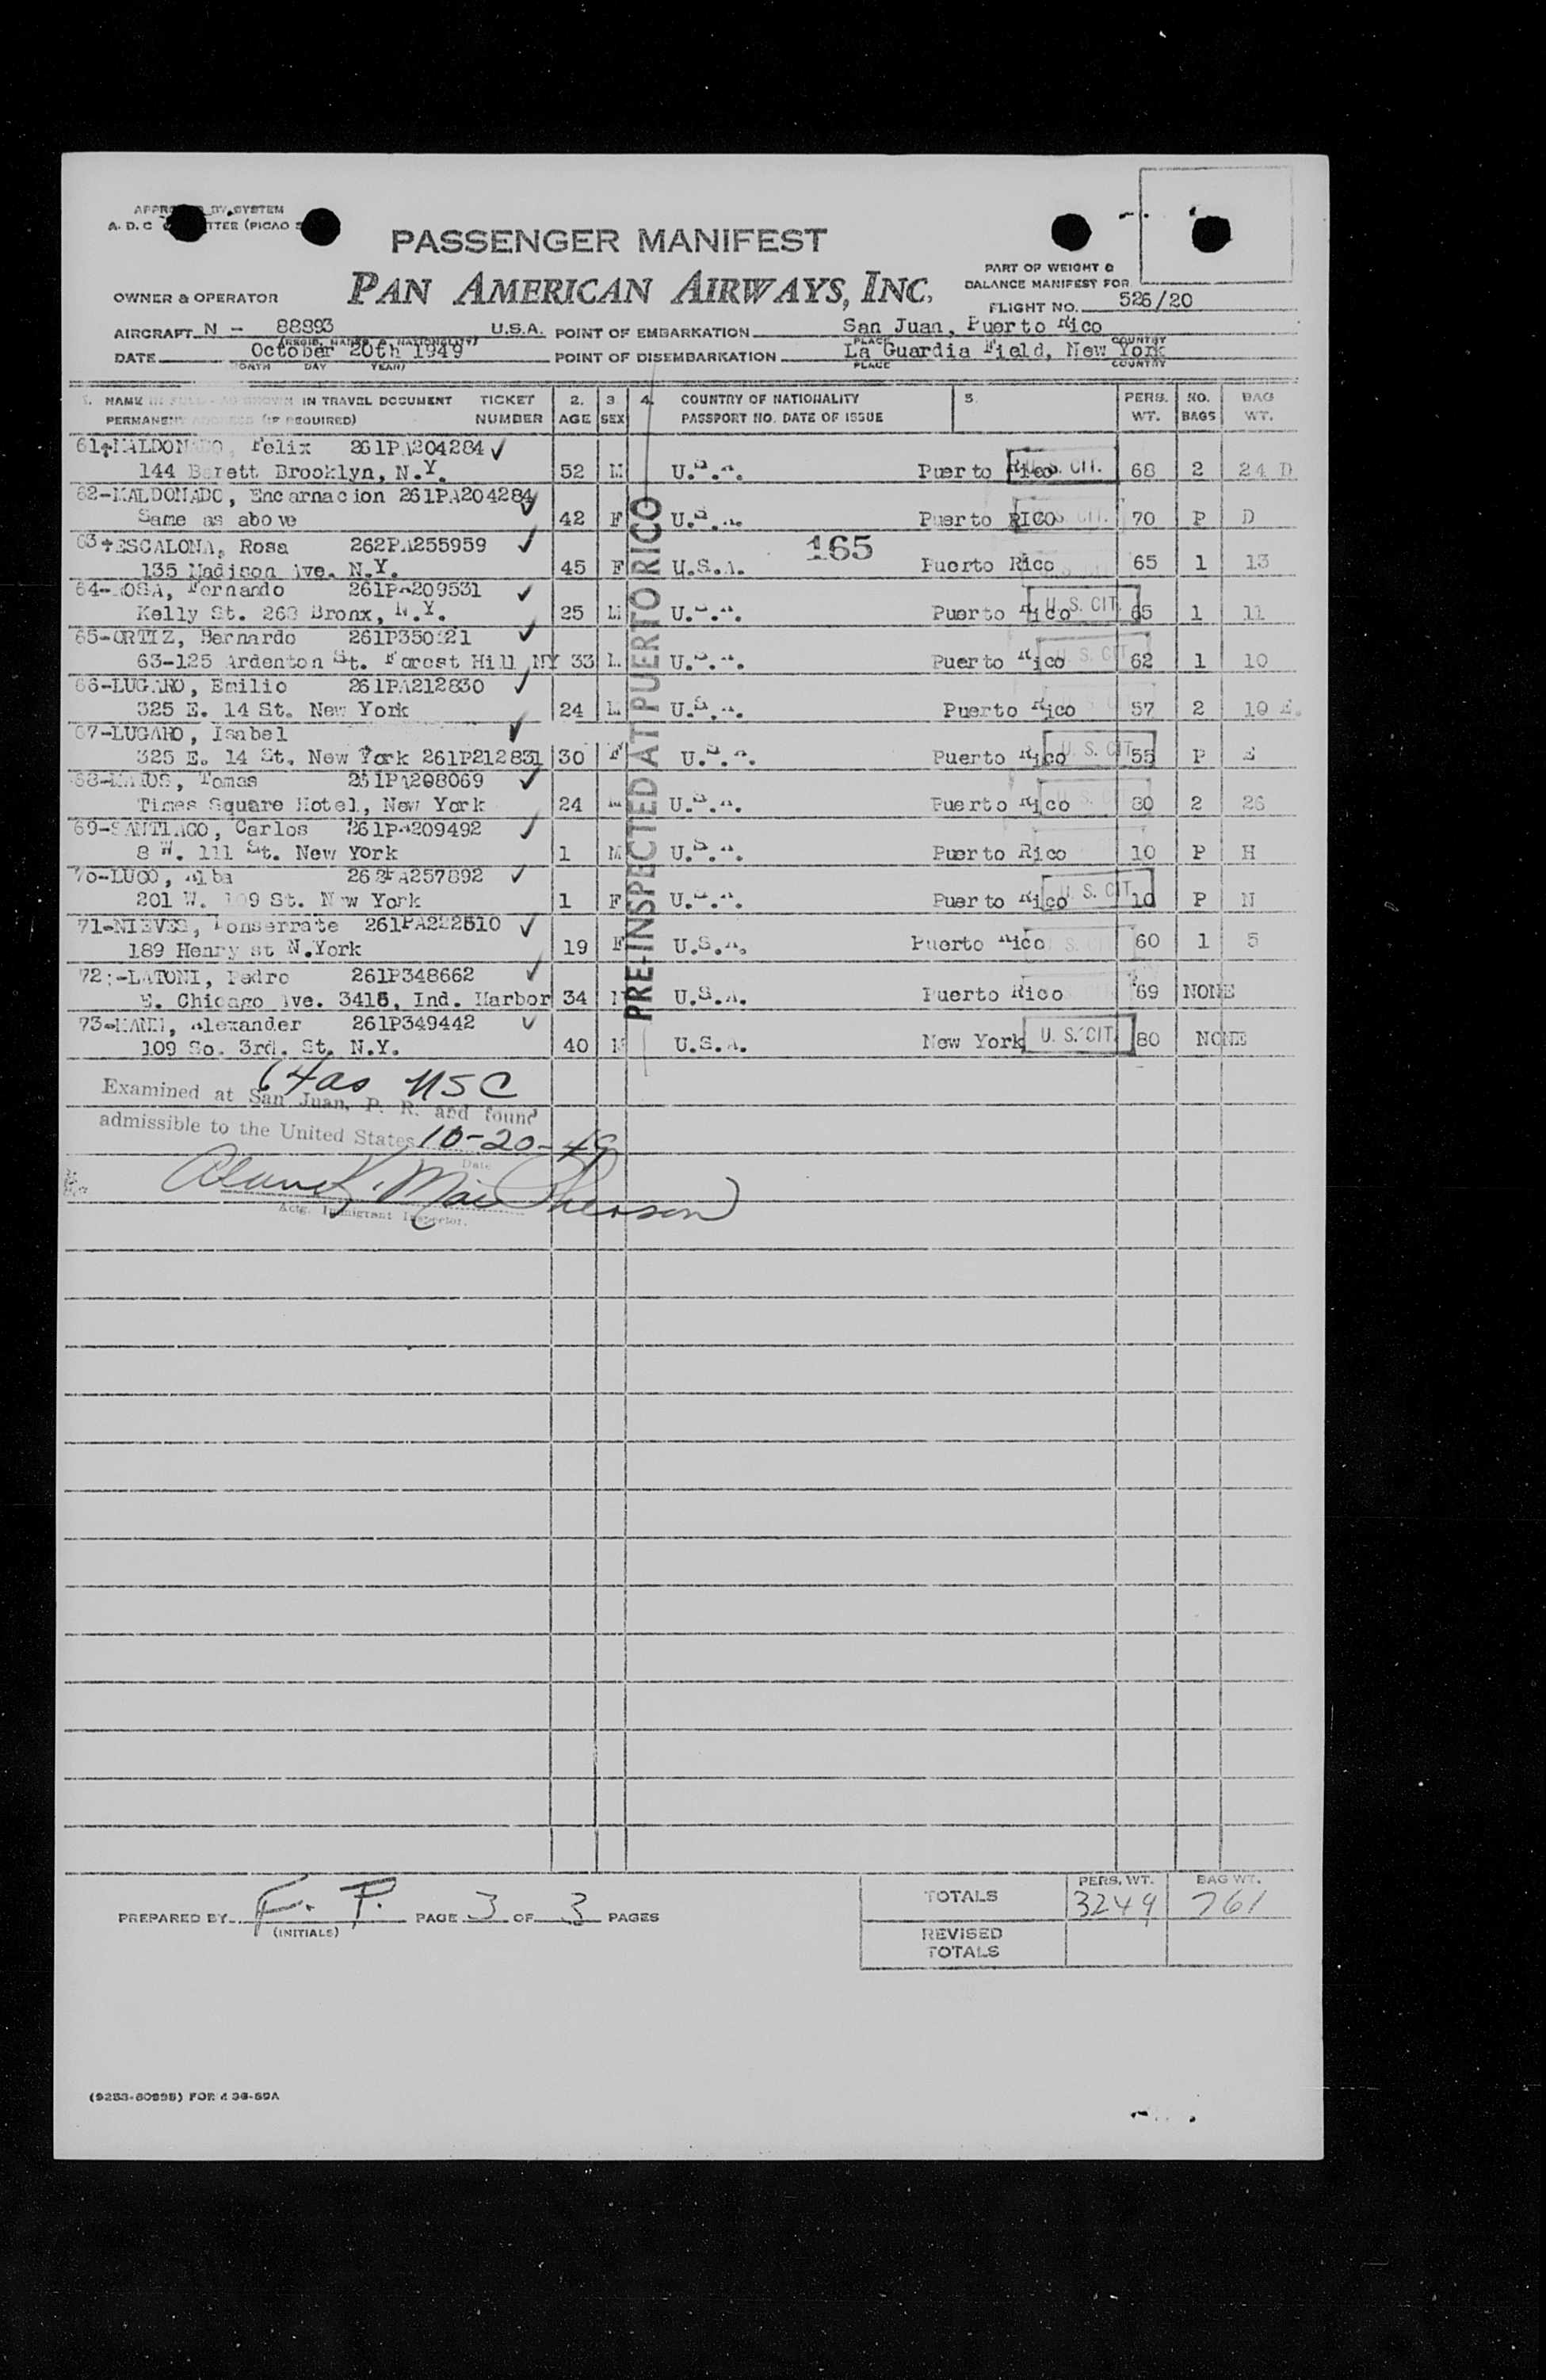 PASSENGER MANIFEST
PAN AMERICAN AIRWAYS, INC.
OWNER & OPERATOR
PART OF WEIGHT &
BALANCE MANIFEST FOR
FLIGHT NO. 526/20
AIRCRAFT N - 88893 U.S.A. POINT OF EMBARKATION San Juan, Puerto Rico
PLACE COUNTRY
DATE October 20th 1949 POINT OF DISEMBARKATION La Guardia Field, New York
DAY YEAR) PLACE COUNTRY
1. NAME IN FULL - AS SHOWN IN TRAVEL DOCUMENT TICKET 2. 3. 4. COUNTRY OF NATIONALITY 5. PERS. NO. BAG
PERMANENT ADDRESS (IF REQUIRED) NUMBER AGE SEX PASSPORT NO. DATE OF ISSUE WT. BAGS WT.
61-MALDONADO, Felix 261PA204284 ✓
144 Barett Brooklyn, N.Y. 52 M U.S.A. Puerto Rico U.S. CIT. 68 2 24 D
62-MALDONADO, Encarnacion 261PA204284 ✓
Same as above 42 F U.S.A. Puerto RICO U.S. CIT. 70 P D
63-ESCALONA, Rosa 262PA255959 ✓ 165
135 Madison Ave. N.Y. 45 F U.S.A. Puerto Rico 65 1 13
64-ROSA, Fernando 261PA209531 ✓
Kelly St. 268 Bronx, N.Y. 25 M U.S.A. Puerto Rico U.S. CIT. 65 1 11
65-ORTIZ, Bernardo ✓
63-125 Ardenton St. Forest Hill NY 33 M U.S.A. Puerto Rico U.S. CIT 62 1 10
66-LUGARO, Emilio 261PA212830 ✓
325 E. 14 St. New York 24 M U.S.A. Puerto Rico 57 2 19 E.
67-LUGARO, Isabel ✓
325 E. 14 St. New York 261P212831 30 F U.S.A. Puerto Rico U.S. CIT. 55 P E
68-RAMOS, Tomas 261PA208069 ✓
Times Square Hotel, New York 24 M U.S.A. Puerto Rico 80 2 26
69-SANTIAGO, Carlos 261PA209492 ✓
8 W. 111 St. New York 1 M U.S.A. Puerto Rico 10 P H
70-LUGO, Alba 262PA257892 ✓
201 W. 109 St. New York 1 F U.S.A. Puerto Rico U.S. CIT. 10 P N
71-NIEVES, Monserrate 261PA222510 ✓
189 Henry st N.York 19 F U.S.A. Puerto Rico 60 1 5
72:-LATONI, Pedro 261P348662 ✓
E. Chicago Ave. 3415, Ind. Harbor 34 M U.S.A. Puerto Rico 69 NONE
73-MANN, Alexander 261P349442 ✓
109 So. 3rd. St. N.Y. 40 M U.S.A. New York U.S. CIT. 80 NONE
PRE-INSPECTED AT PUERTO RICO
as USC
Examined at San Juan, P. R. and found
admissible to the United States 10-20-49
Date
Actg. Immigrant Inspector.
PREPARED BY F. P. PAGE 3 OF 3 PAGES
(INITIALS)
PERS. WT. BAG WT.
TOTALS 3249 761
REVISED
TOTALS